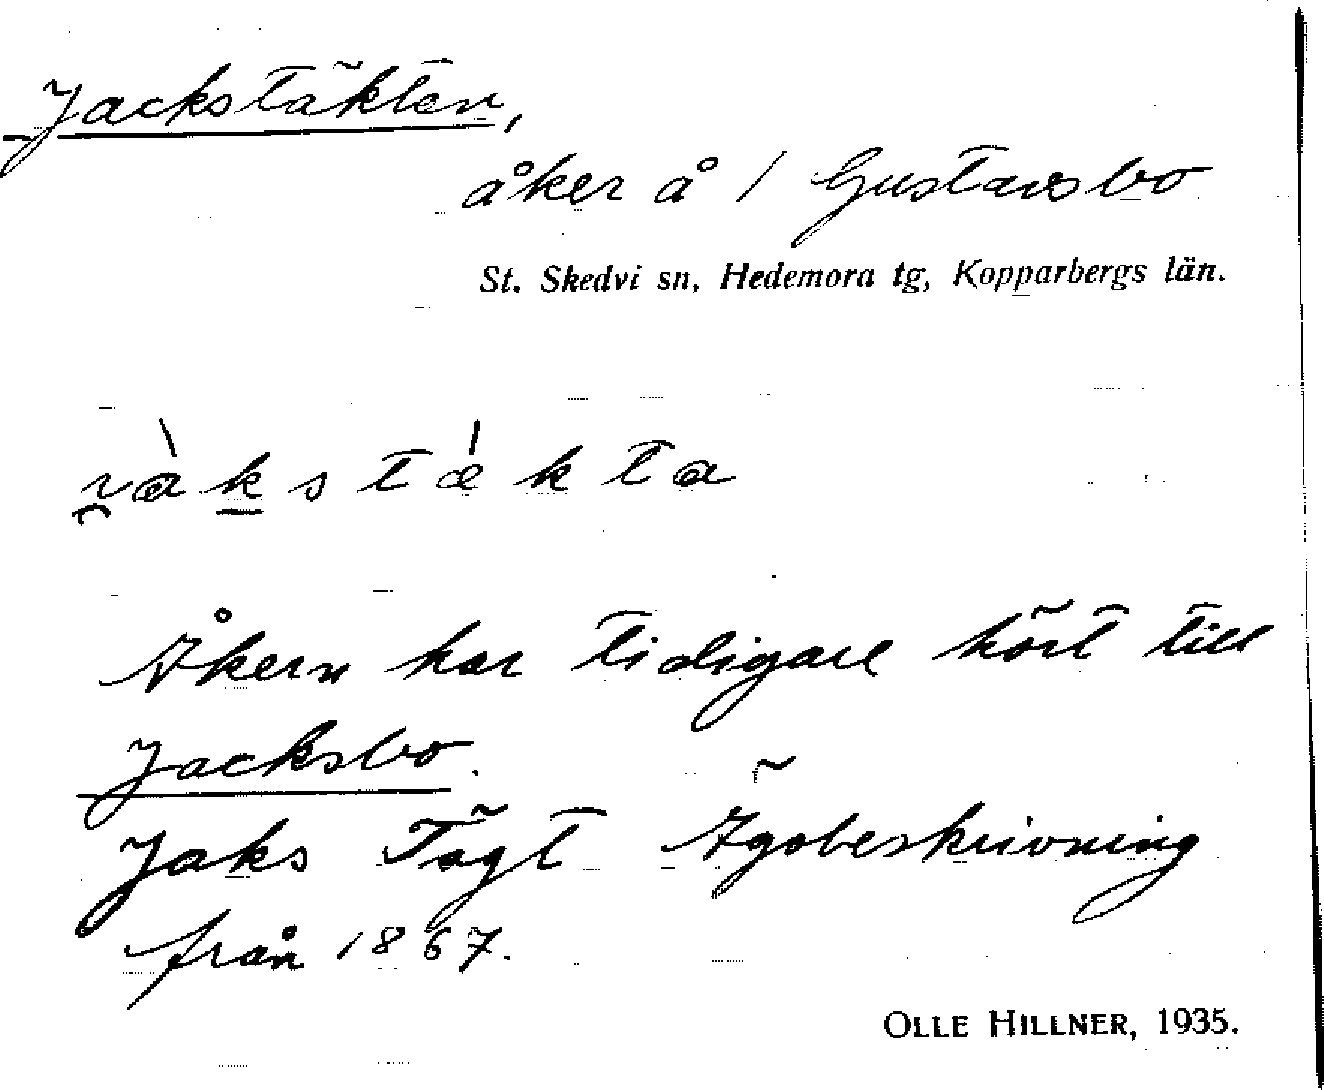 Jackstäkten,
åker å 1 Gustavsbo
St. Skedvi sn, Hedemora tg, Kopparbergs län.
Åkern har tidigare hört till
Jacksbo.
Jaks Tägt Ägobeskrivning
från 1867.
OLLE HILLNER, 1935.